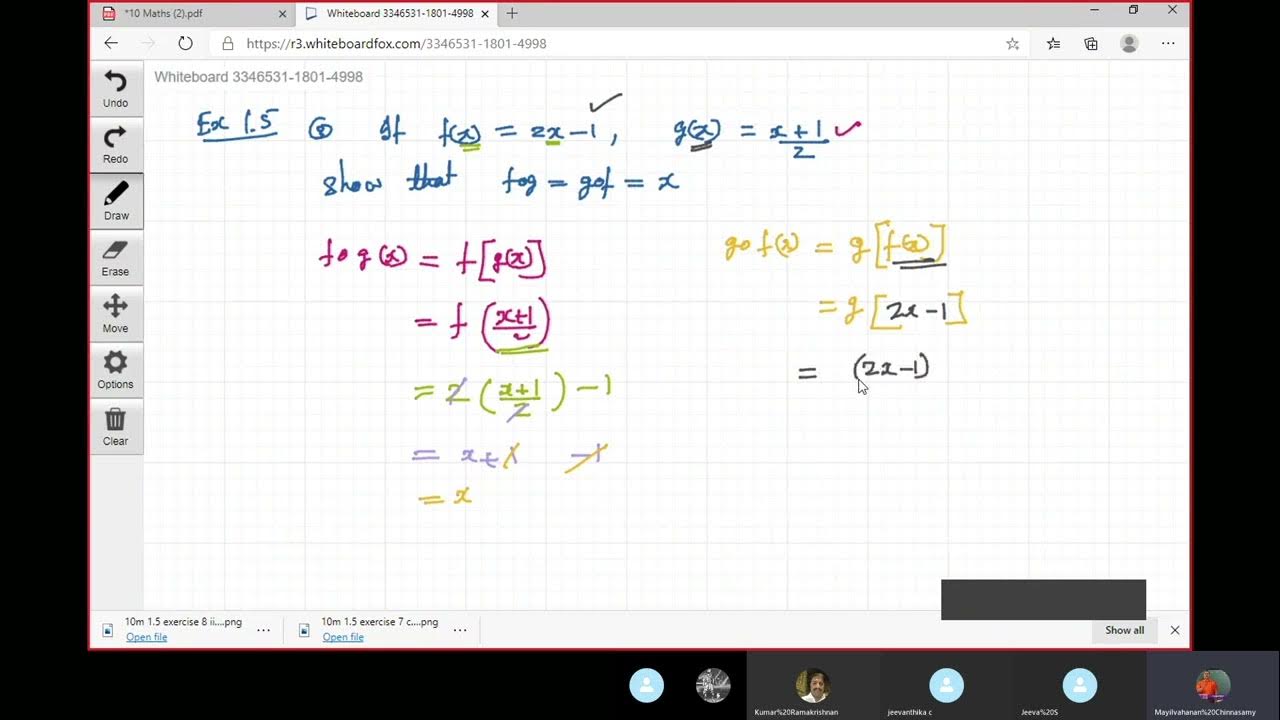 *10 Maths (2).pdf
Whiteboard 3346531-1801-4998
https://r3.whiteboardfox.com/3346531-1801-4998
Whiteboard 3346531-1801-4998
Undo
Redo
Draw
Erase
Move
Options
Clear
Ex 1.5 If f(x) = 2x - 1, g(x) = x+1/2
Show that fog = gof = x
fog(x) = f[g(x)]
= f(x+1/2)
= 2(x+1/2) - 1
= x+1 -1
= x
gof(x) = g[f(x)]
= g[2x-1]
= (2x-1)
10m 1.5 exercise 8 ii....png
Open file
10m 1.5 exercise 7 c....png
Open file
Show all
Kumar%20Ramakrishnan
jeevanthika c
Jeeva%20S
Mayilvahanan%20Chinnasamy